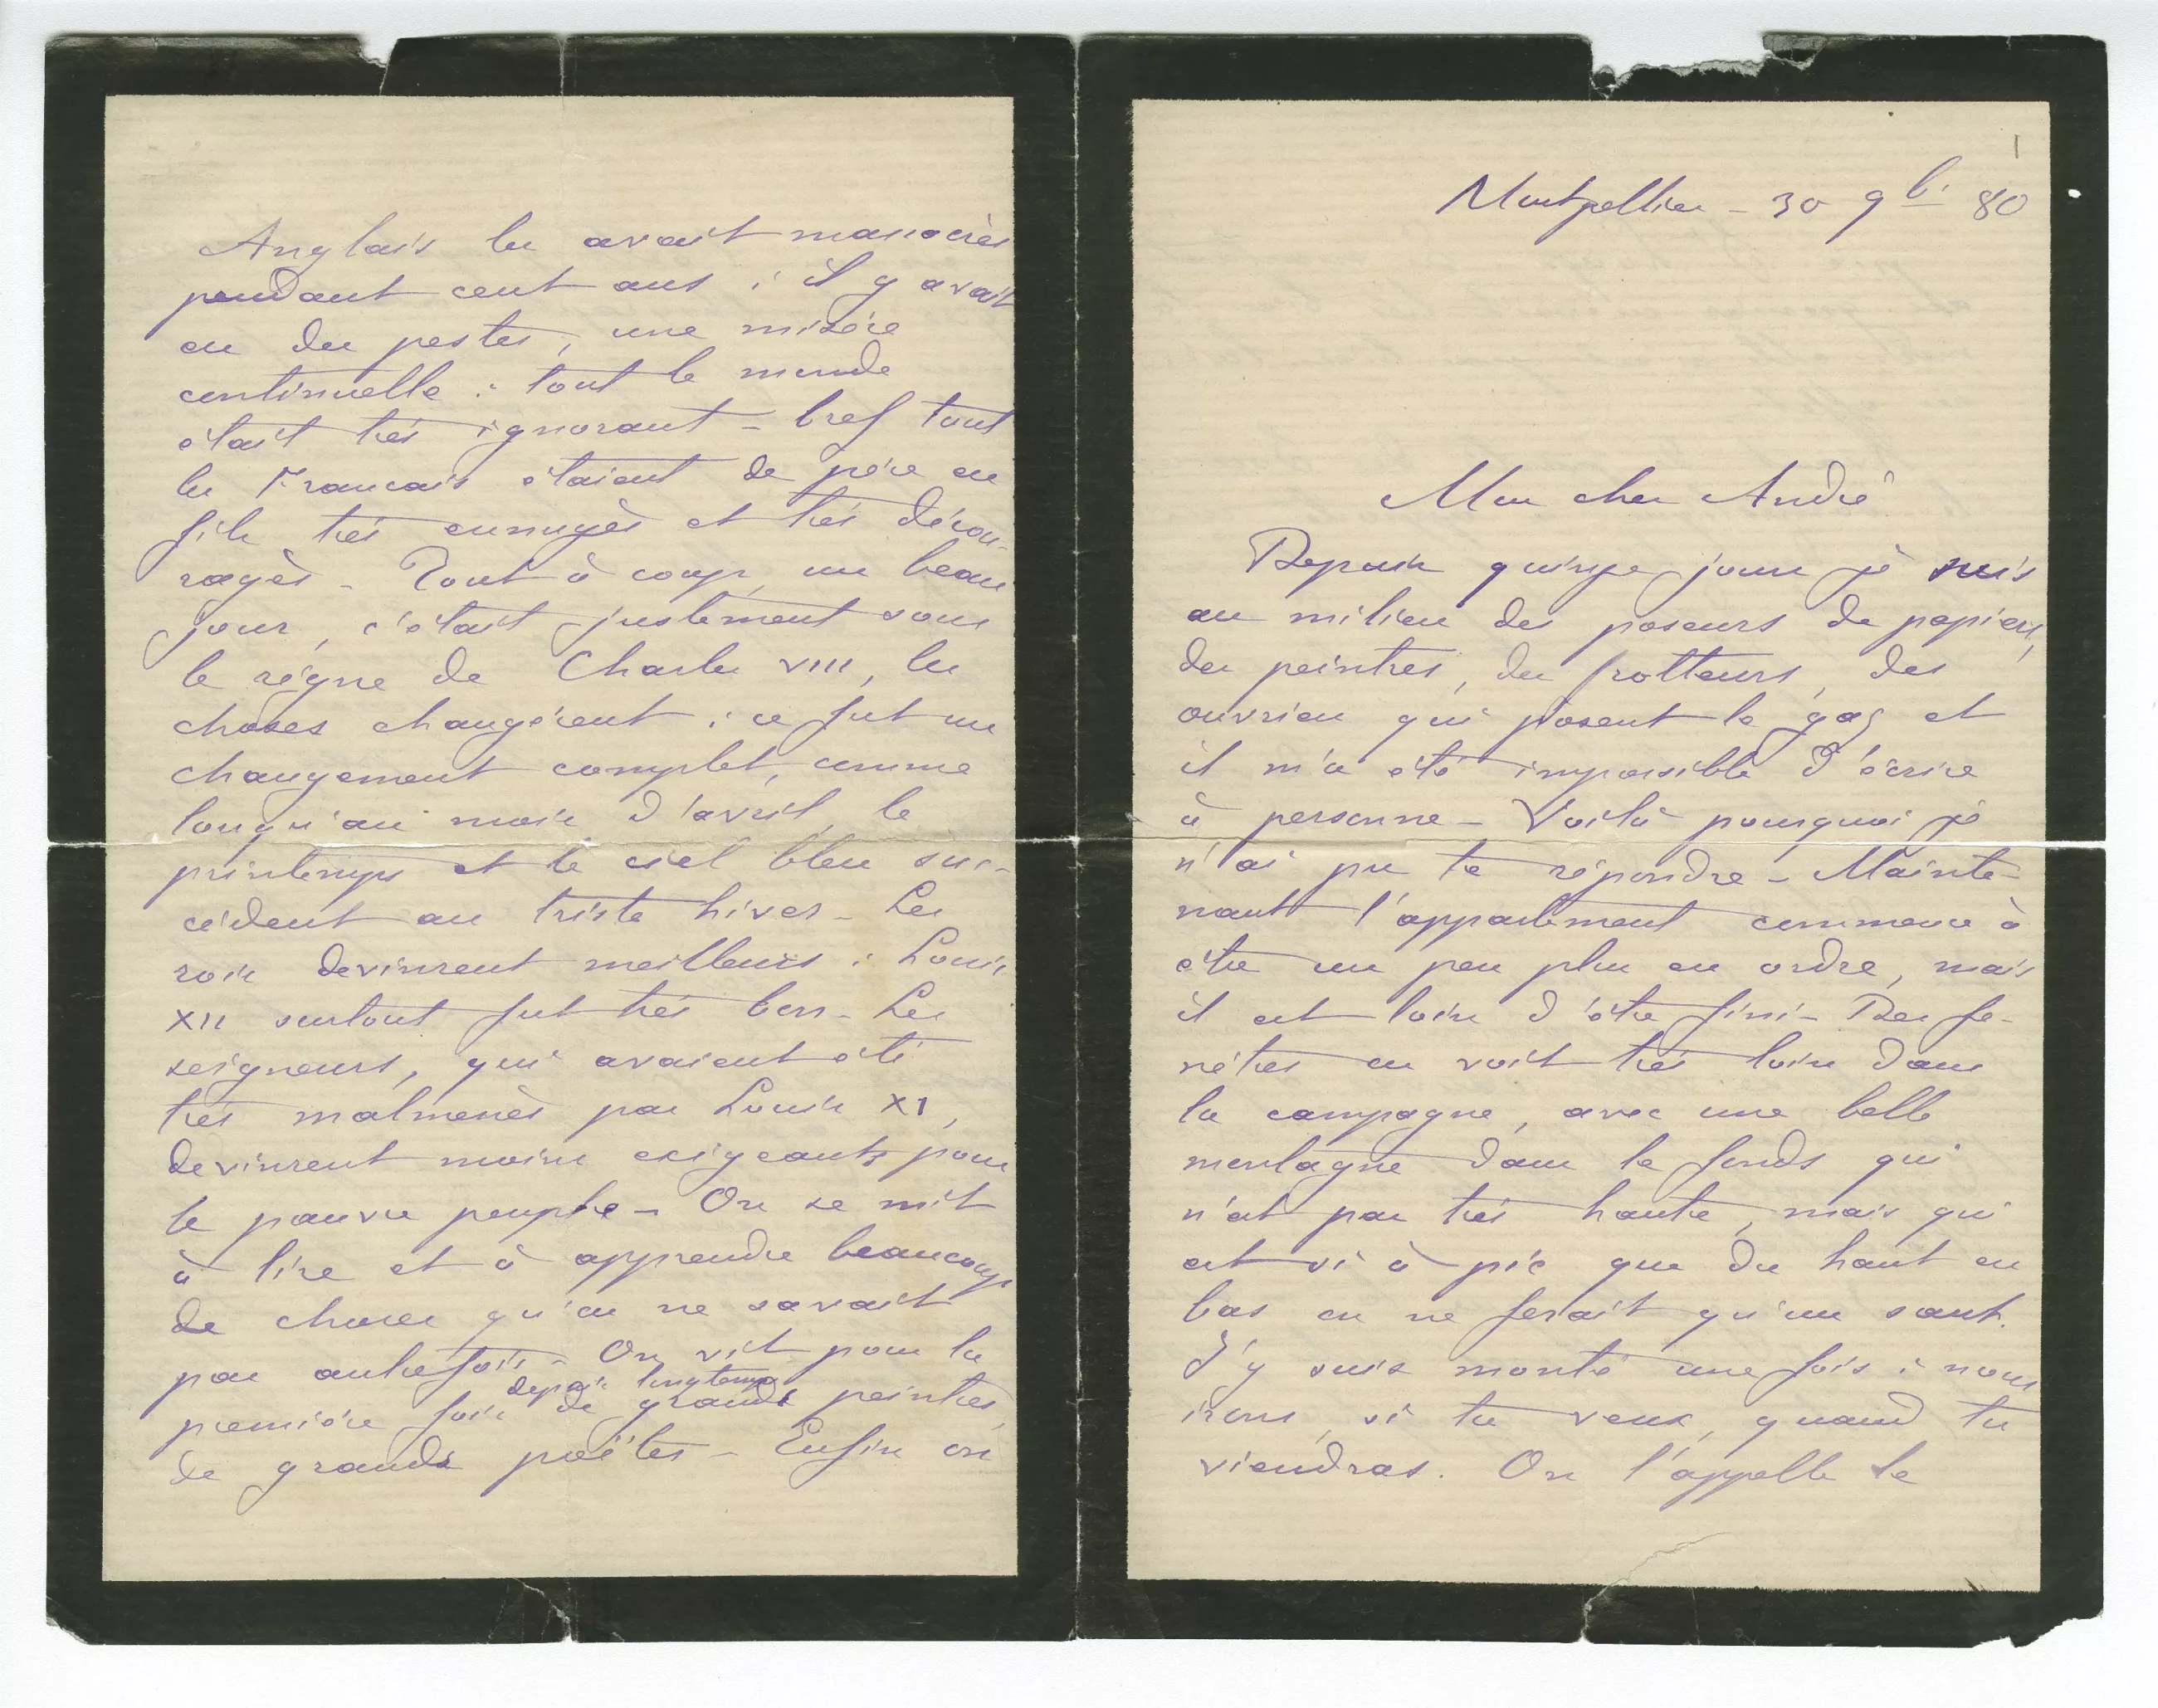 1
Montpellier - 30 9br 80
Mon cher André
Depuis quinze jours je suis
au milieu des poseurs de papiers,
des peintres, des frotteurs, des
ouvriers qui posent le gaz et
il m'a été impossible d'écrire
à personne - Voilà pourquoi je
n'ai pu te répondre - Mainte-
nant l'appartement commence à
être un peu plus en ordre, mais
il est loin d'être fini - Des fe-
nêtres on voit très loin dans
la campagne, avec une belle
montagne dans le fonds qui
n'est pas très haute, mais qui
est si à pic que du haut en
bas on ne ferait qu'un saut.
J'y suis monté une fois : nous
irons, si tu veux, quand tu
viendras. On l'appelle le
Anglais les avait massacrés
pendant cent ans : il y avait
eu des pestes, une misère
continuelle : tout le monde
était très ignorant - bref tous
les Français étaient de père en
fils très ennuyés et très décou-
ragés - Tout à coup, un beau
jour, c'était justement sous
le règne de Charles VIII, les
choses changèrent : ce fut un
changement complet, comme
lorsqu'au mois d'avril, le
printemps et le ciel bleu suc-
cèdent au triste hiver - Les
rois devinrent meilleurs : Louis
XII surtout fut très bon - Les
seigneurs, qui avaient été
très malmenés par Louis XI,
devinrent moins exigeants pour
le pauvre peuple - On se mit
à lire et à apprendre beaucoup
de choses qu'on ne savait
pas autrefois - On vit pour la
depuis longtemps
première fois de grands peintres,
de grands poëtes - Enfin on